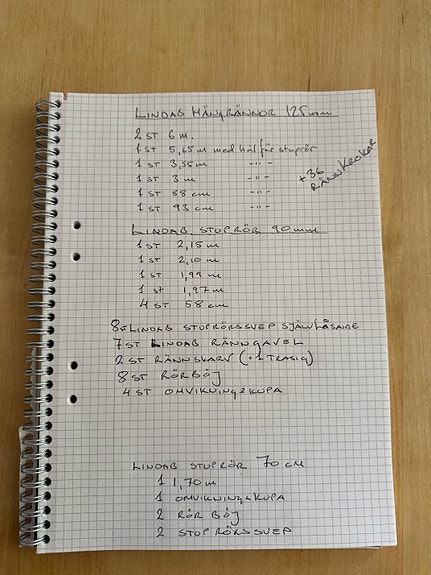 LINDAB HÄNGRÄNNOR 125mm
2 ST 6 m.
1 ST 5,65 m med hål för stuprör
1 ST 3,55 m -"-
1 ST 3 m -"-
1 ST 58 cm -"-
1 ST 93 cm -"-
+36 RÄNNKROKAR
LINDAB STUPRÖR 90mm
1 ST 2,15 m
1 ST 2,10 m
1 ST 1,99 m
1 st 1,97 m
4 ST 58 cm
8st LINDAB STUPRÖRSSVEP SJÄLVLÅSANDE
7 ST LINDAB RÄNNGAVEL
2 ST RÄNNSKARV (+1 TRASIG)
8 ST RÖRBÖJ
4 ST OMVIKNINGSKUPA
LINDAB STUPRÖR 70 CM
1 1,70 m
1 OMVIKNINGSKUPA
2 RÖR BÖJ
2 STUPRÖRSSVEP